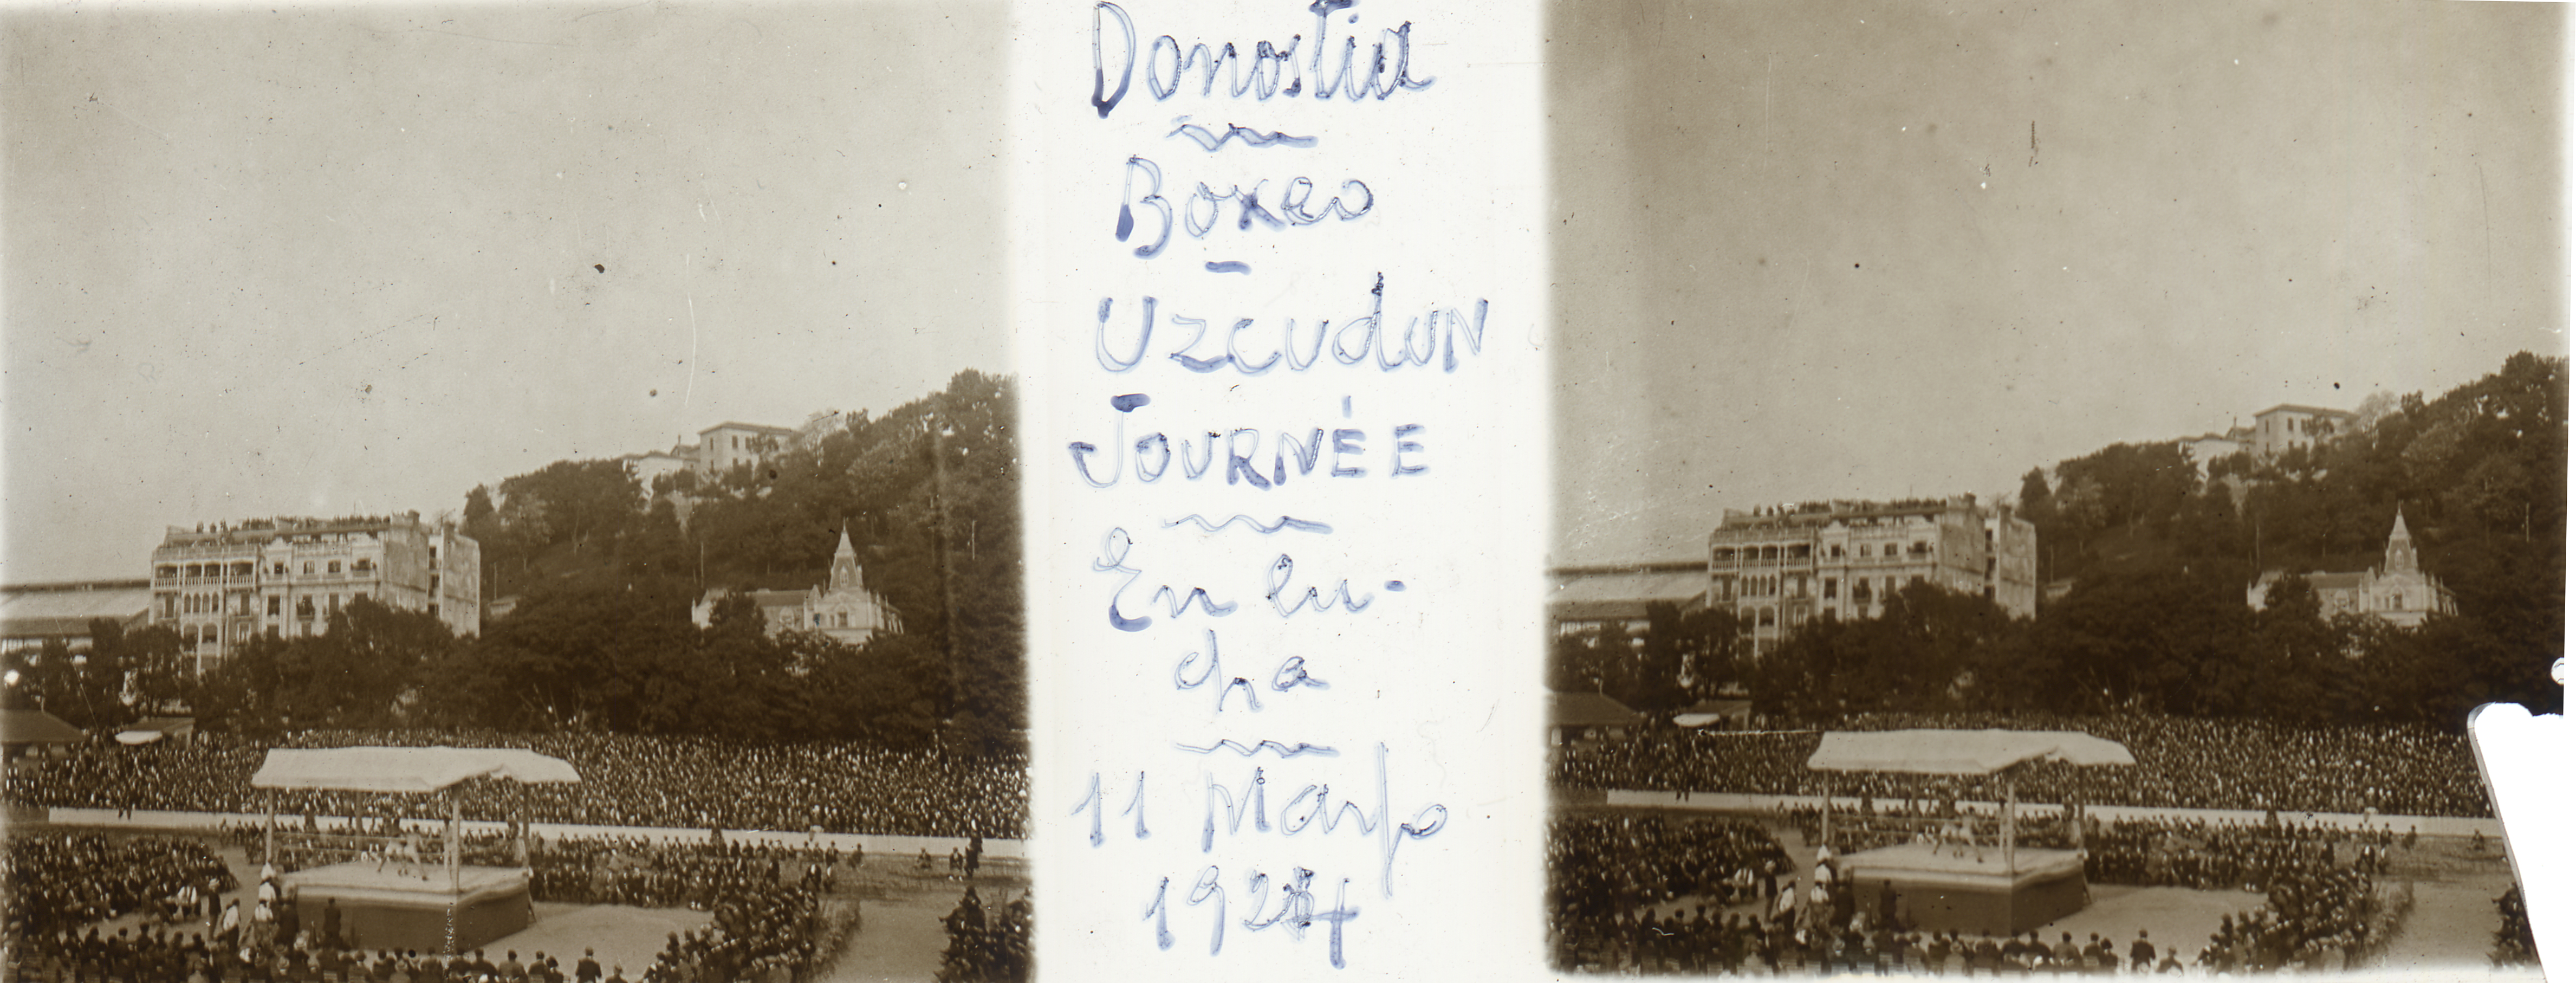 Donostia
Boxeo
-
Uzcudun
JOURNÉE
En lu-
cha
11 Março
1924